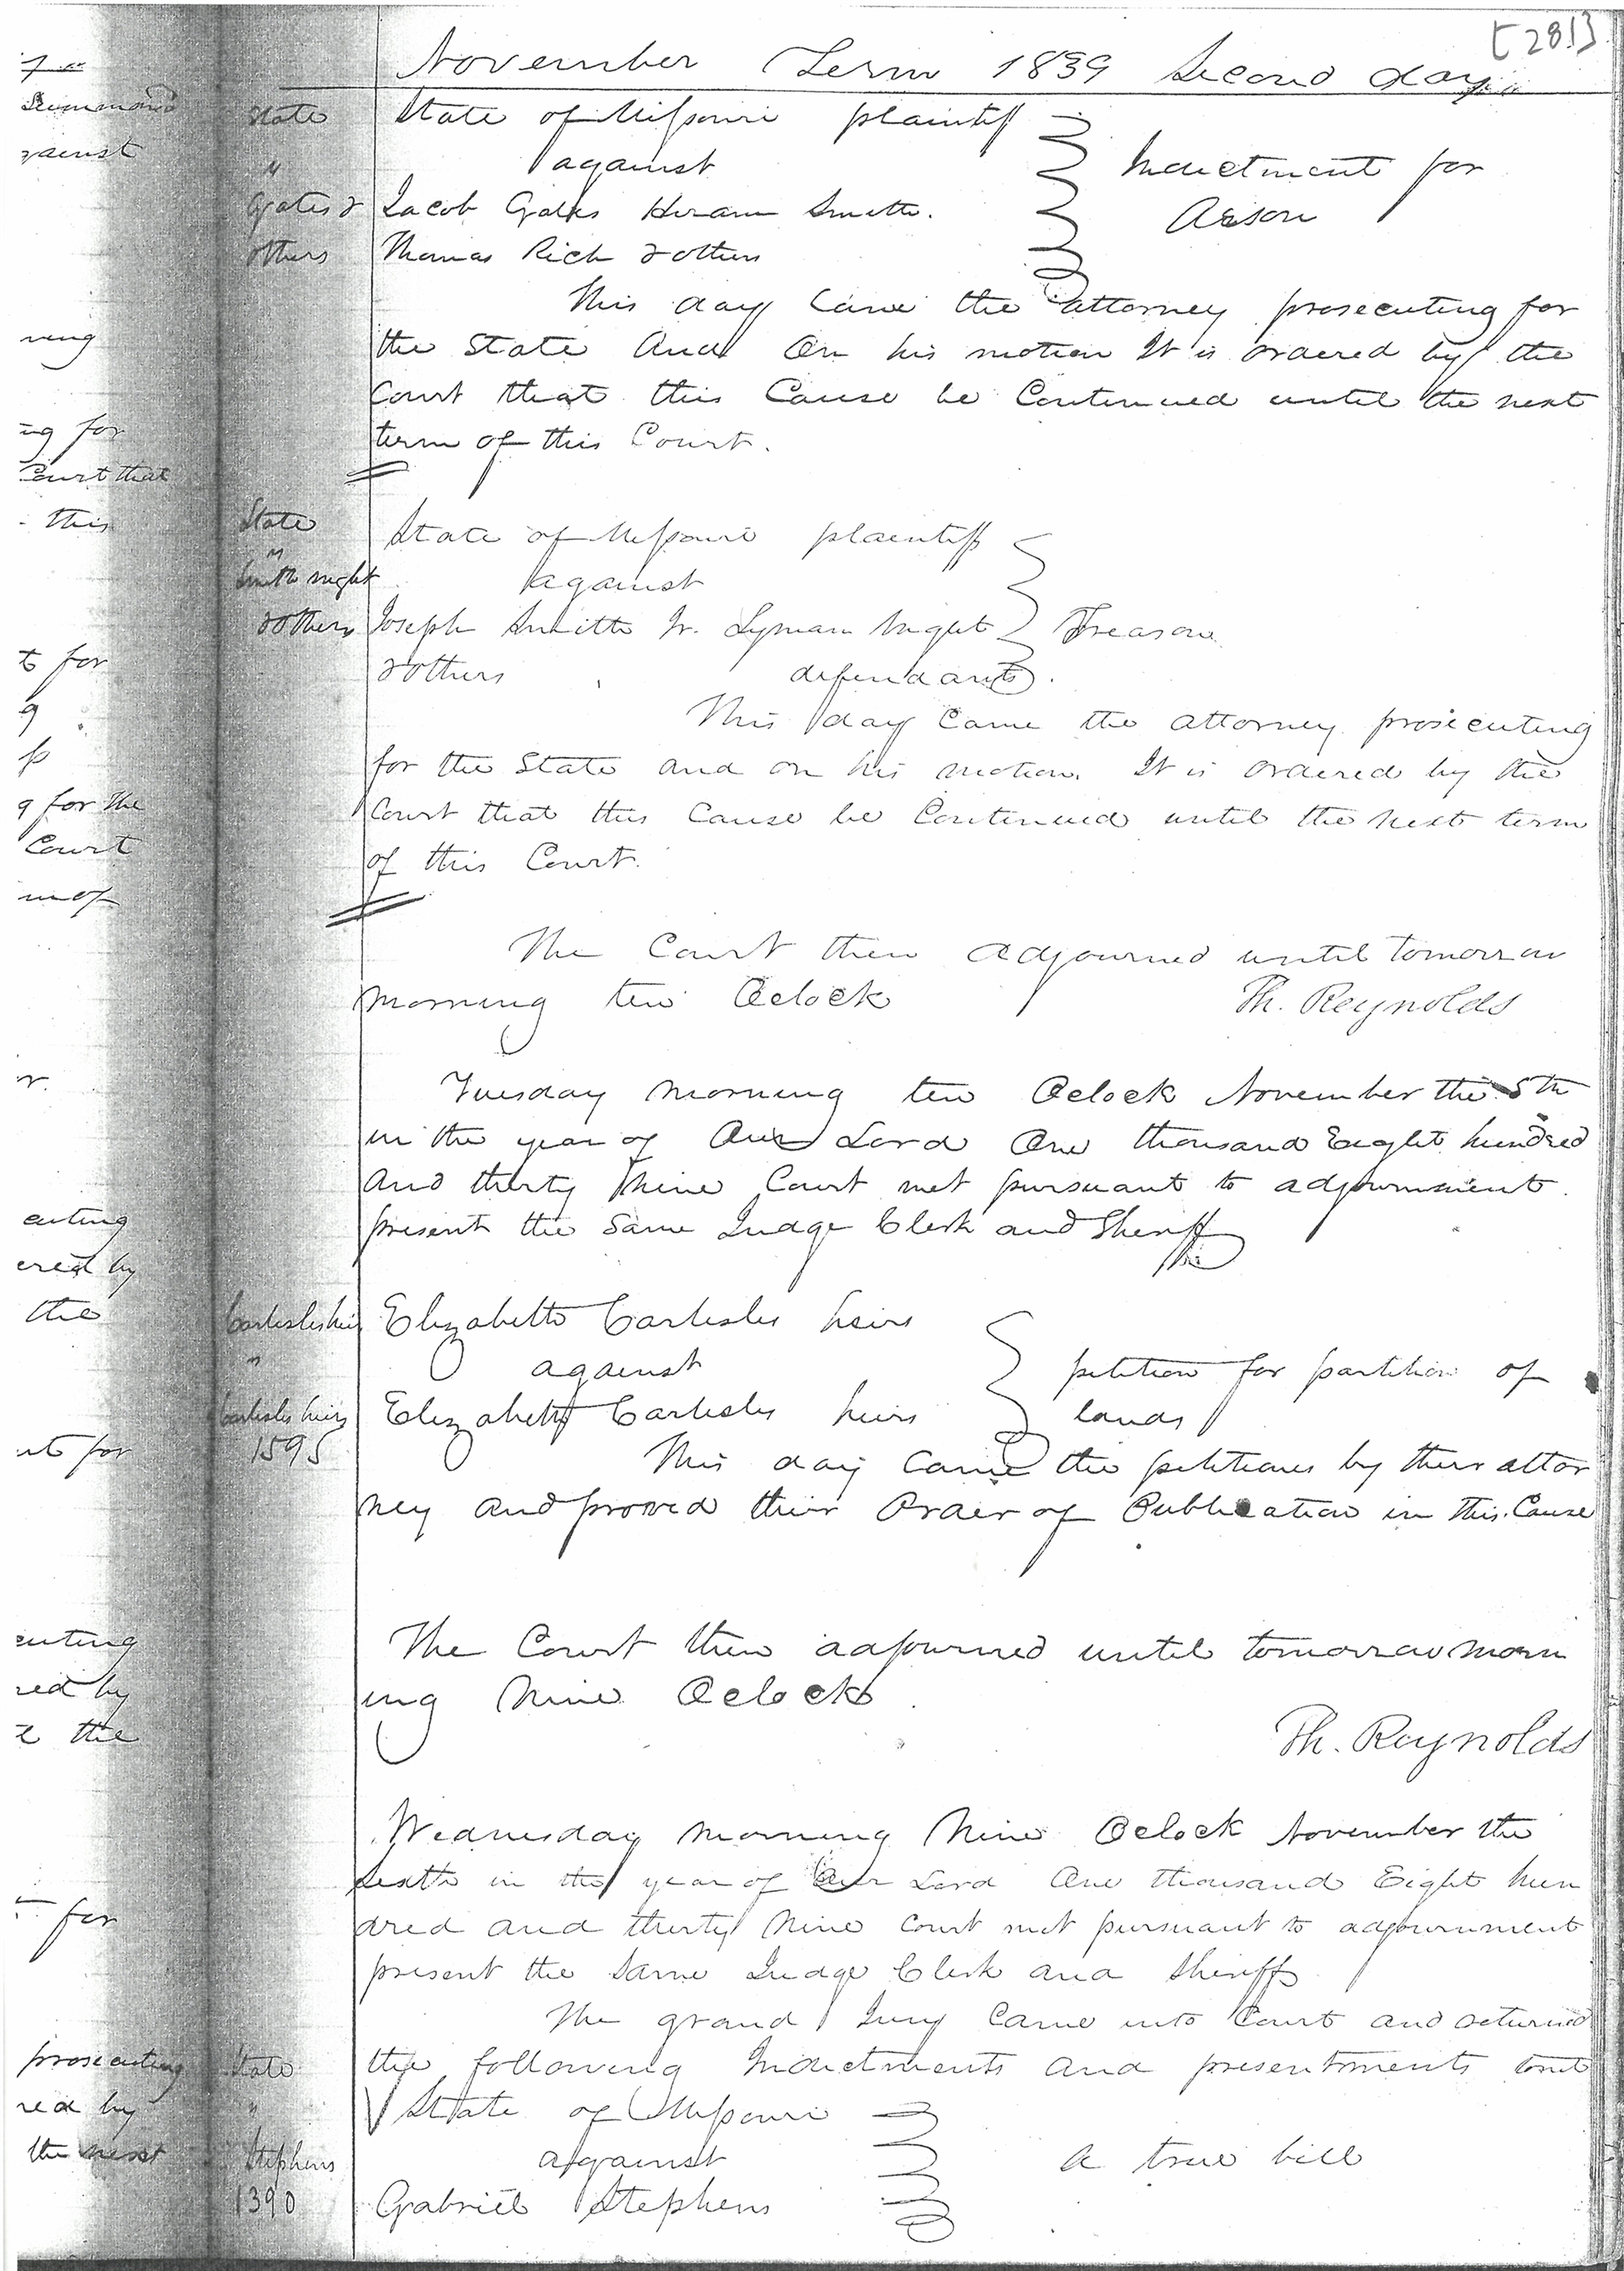 [281]
November Term 1839 Second day
State
State of Missouri plaintiff
"
against
Indictment for
Gates &
Jacob Gates Hiram Smith.
Arson
others
Thomas Rich & others
This day came the attorney prosecuting for
the State And On his motion It is ordered by the
Court that this Cause be Continued until the next
term of this Court.
State
State of Missouri plaintiff
"
Smith night
against
& others
Joseph Smith Jr. Lyman Wight
Treason
& others defendants.
This day Came the attorney prosecuting
for the State and on his motion. It is ordered by the
Court that this Cause be Continued until the next term
of this Court.
The Court then adjourned until tomorrow
morning ten Oclock Th. Reynolds
Tuesday morning ten Oclock November the 5th
in the year of Our Lord One thousand Eight hundred
And thirty Nine Court met pursuant to adjournment.
present the Same Judge Clerk and Sheriff
Carlisles heirs
Elizabeth Carlisles heirs
"
against
petition for partition of
Carlisles heirs
Elizabeth Carlisles heirs
lands
1595
This day came the petitioners by their attor
ney and proved their Order of Publication in this Cause
The Court then adjourned until tomorrow morn
ing Nine Oclock
Th. Reynolds
Wednesday morning Nine Oclock November the
Sixth in the year of Our Lord One thousand Eight hun
dred and thirty Nine Court met pursuant to adjournment
present the Same Judge Clerk and Sheriff
The grand Jury Came into Court and returned
State
the following Indictments and presentments to wit
"
State of Missouri
Stephens
against
a true bill
1390
Gabriel Stephens
Summoned
against
ning
ing for
Court that
this
t for
g
p
g for the
Court
m of
r.
cuting
ered by
the
nt for
cuting
red by
the
for
prosecuting
red by
the next